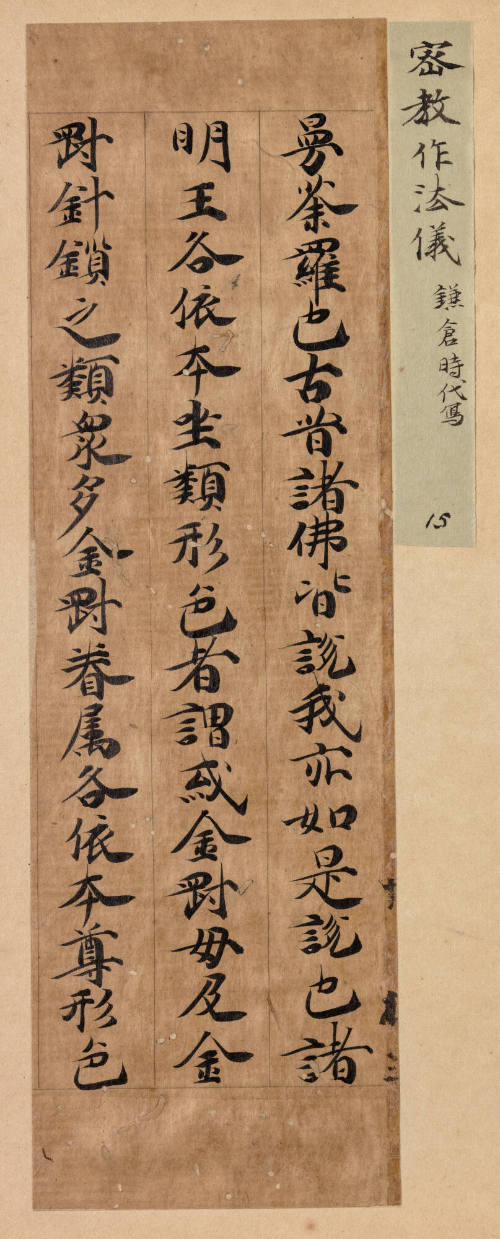 密教作法儀 鎌倉時代寫
15
曼荼羅也古昔諸佛皆説我亦如是説也諸
明王各依本坐類形色者謂或金剛母及金
剛針鎖之類眾多金剛眷属各依本尊形色